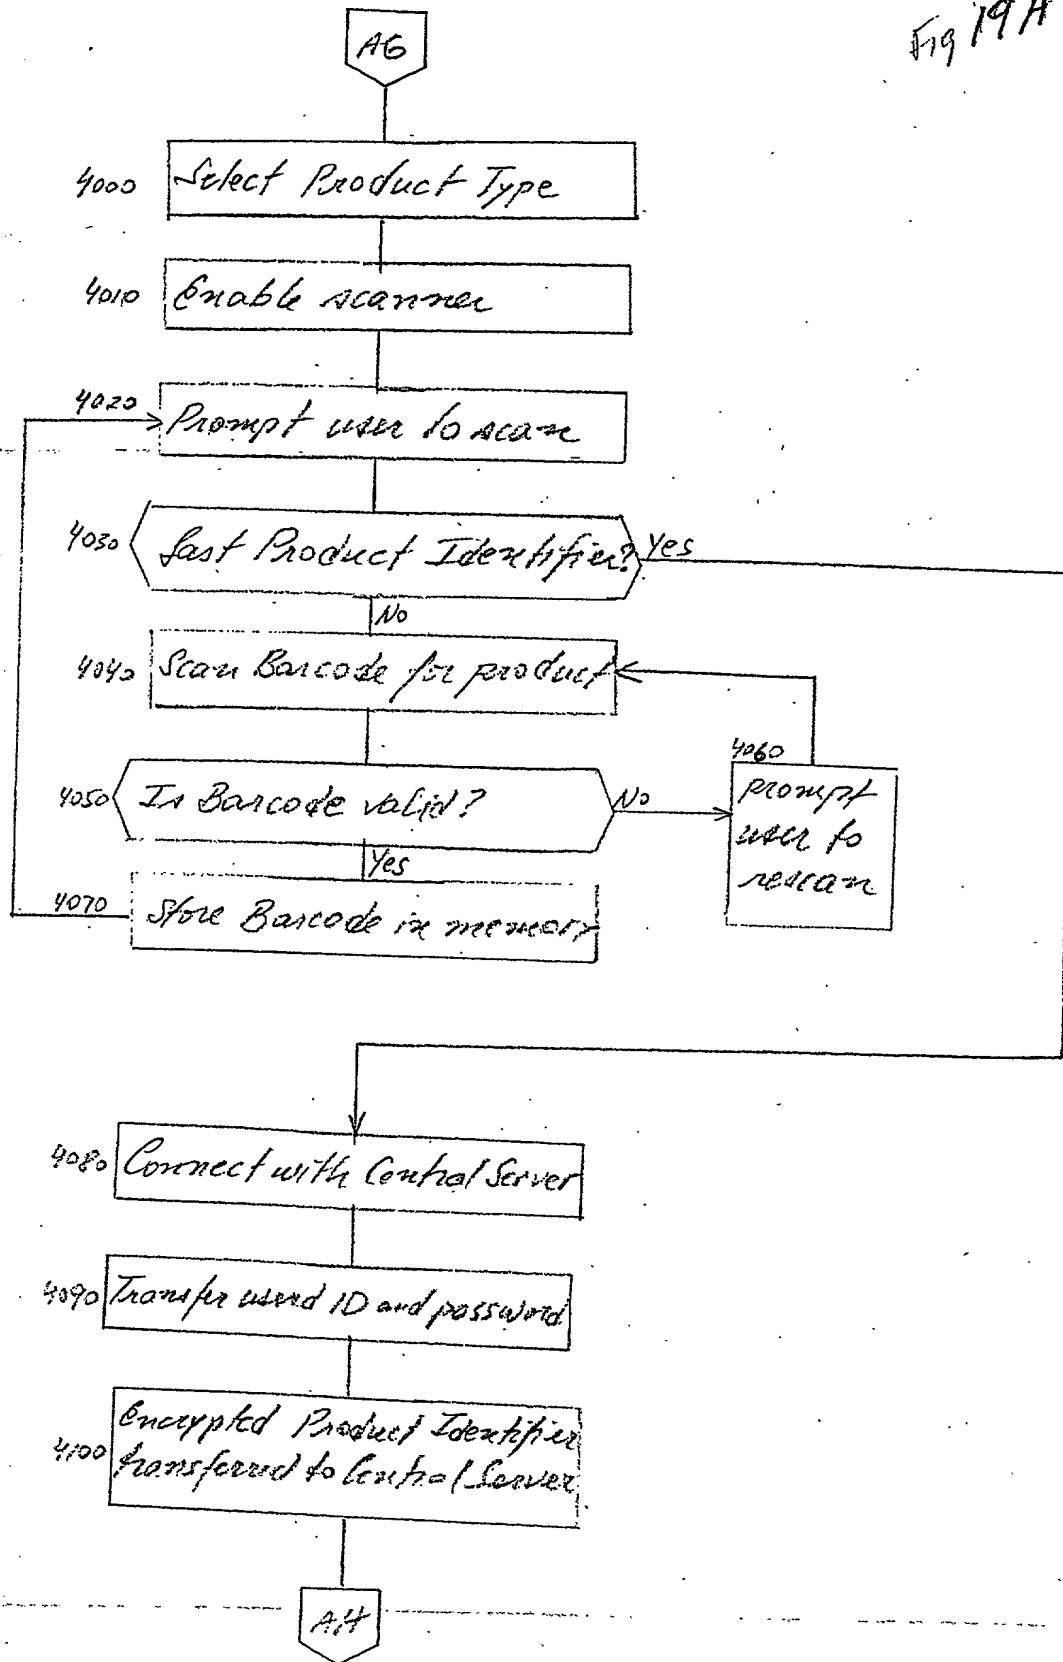 Fig 19A
AG
4000 Select Product Type
4010 Enable scanner
4020
Prompt user to scan
4030 Last Product Identifier? Yes
No
4040 Scan Barcode for product
4060
4050 Is Barcode valid? No
prompt
user to
rescan
Yes
4070 Store Barcode in memory
4080 Connect with Central Server
4090 Transfer userd ID and password
Encrypted Product Identifier
4100 transferred to Central Server
AH